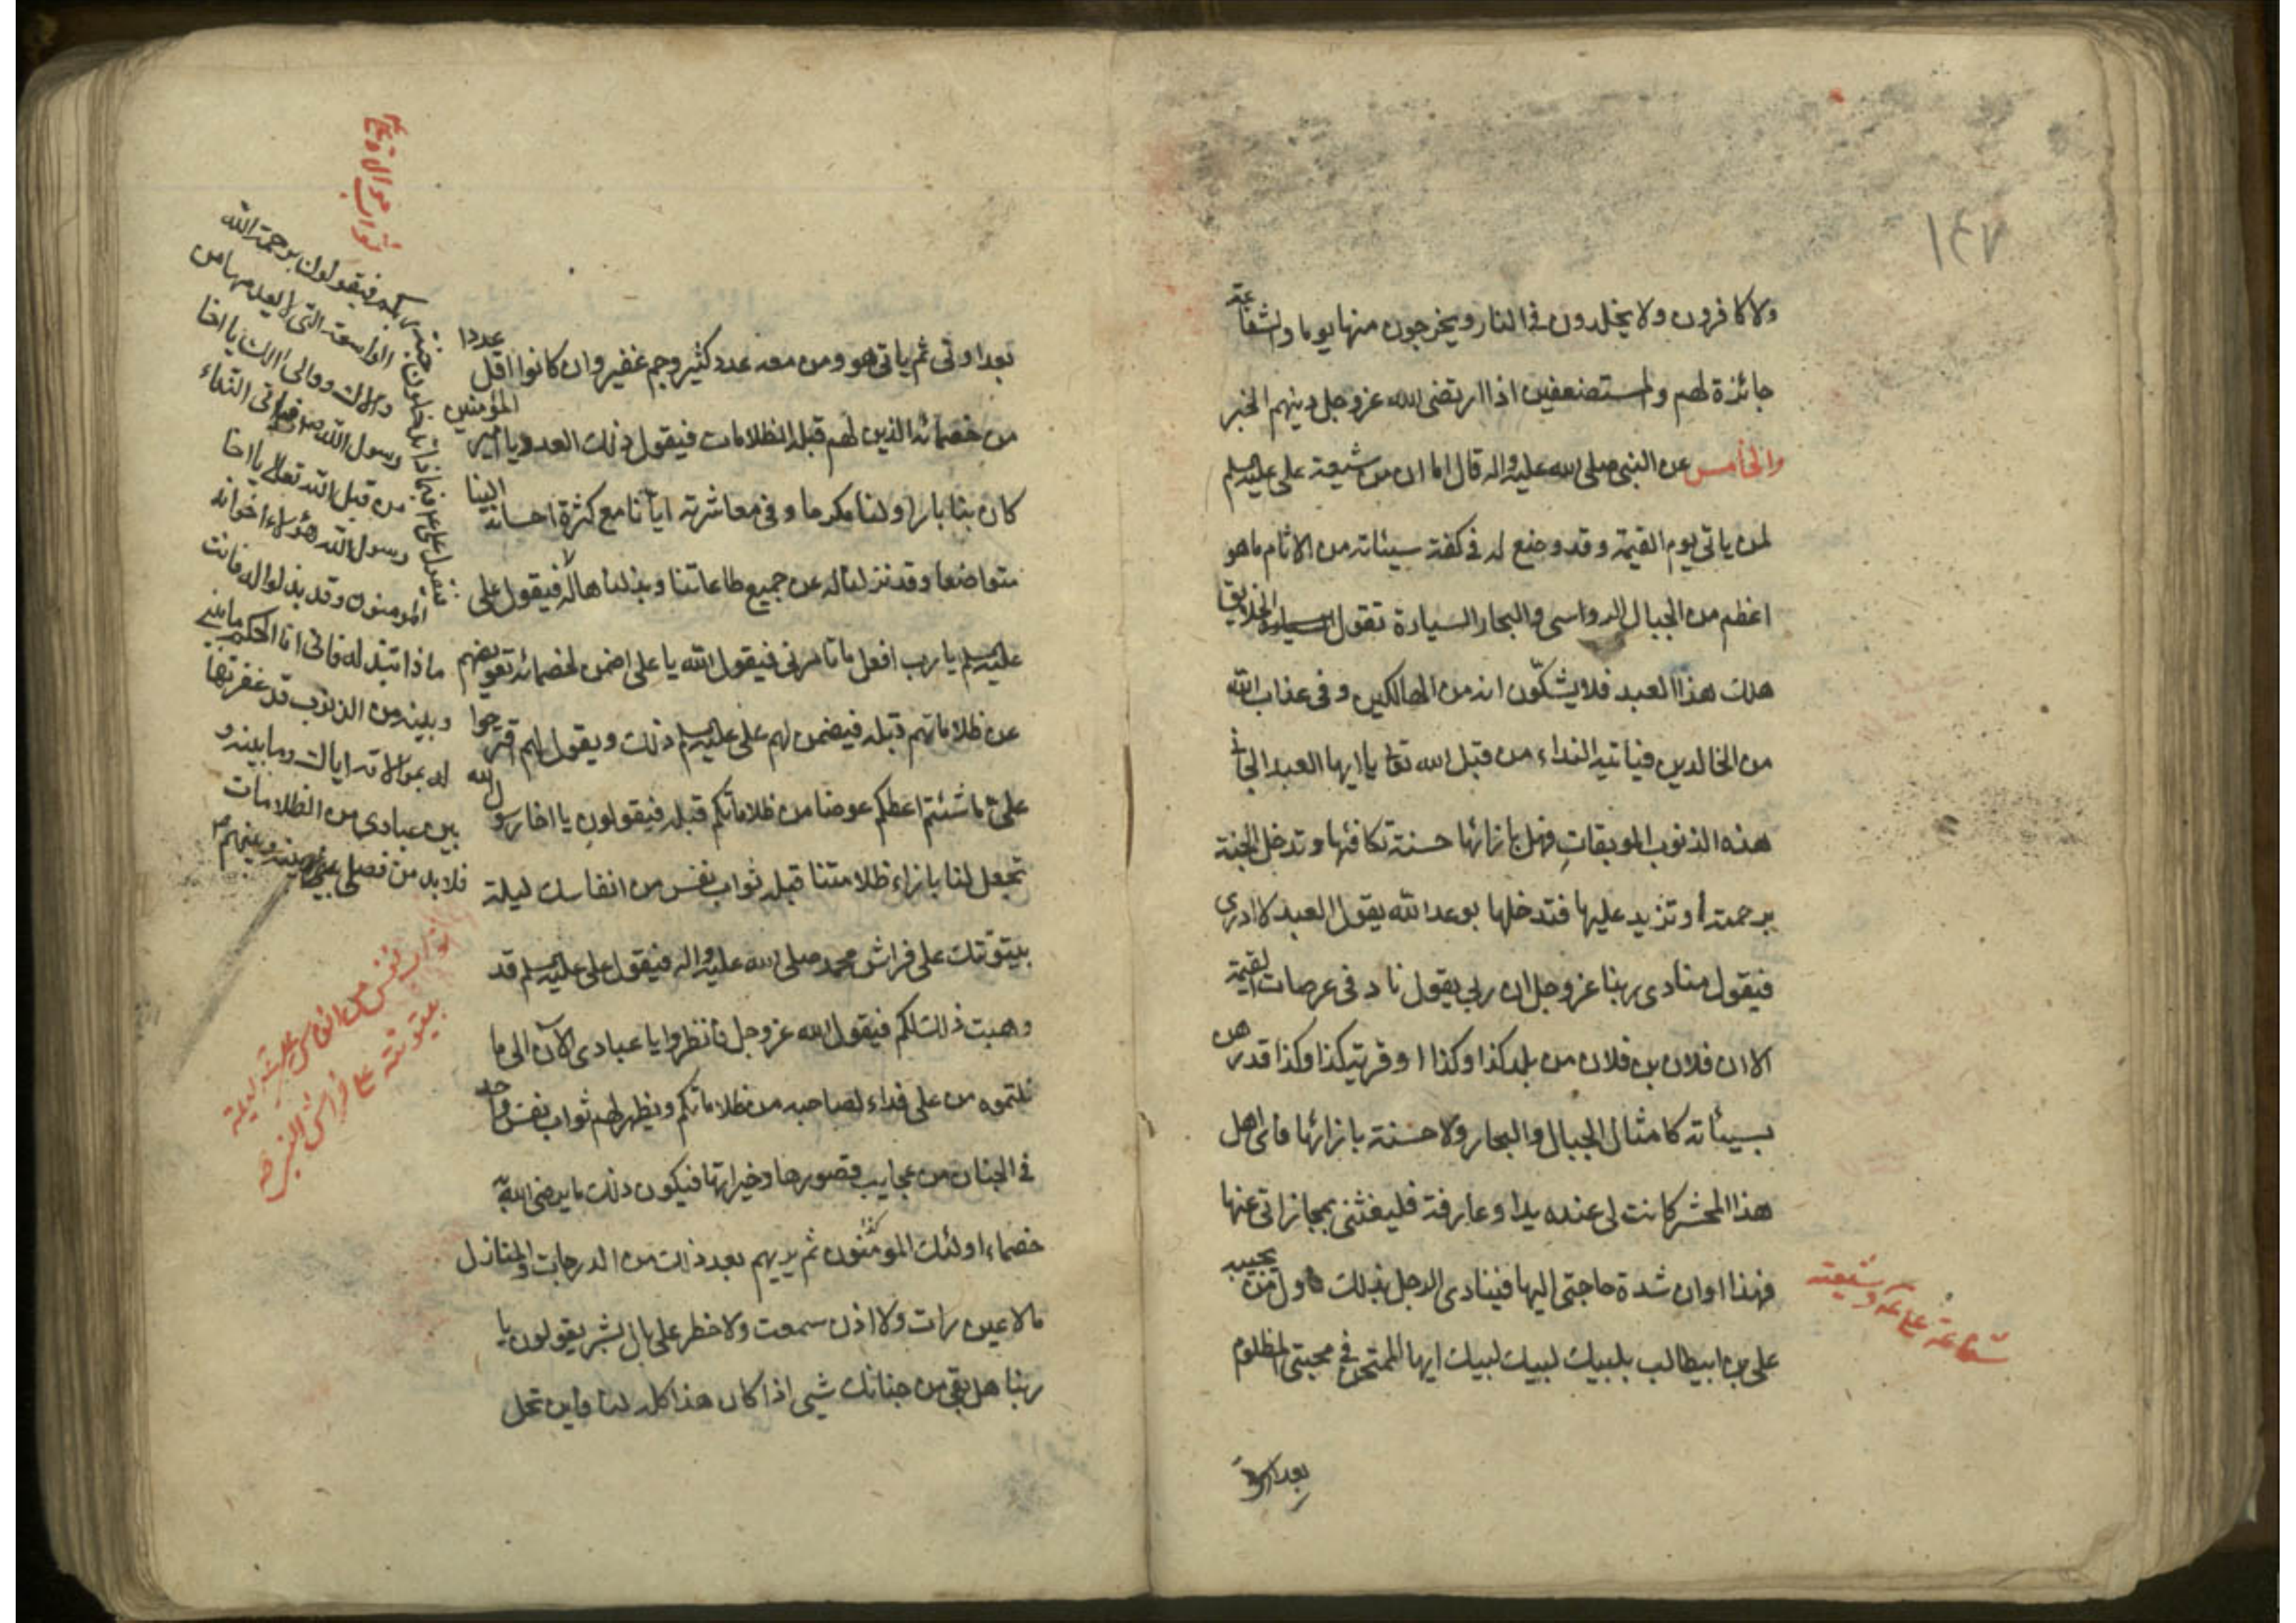 ١٤٧
ولا كافرون ولا يخلدون في النار ويخرجون منها يوما والشفاعة
جائزة لهم والمستضعفين اذا ارتضى الله عزوجل دينهم الخبر
والخامس عن النبي صلى الله عليه واله قال اما ان من شيعة على عليه السلم
لمن ياتى يوم القيمة وقد وضع له فى كفة سيئاته من الاثام ما هو
اعظم من الجبال الرواسى والبحار السيارة تقول الخلايق
هلك هذا العبد فلا يشكّون انه من الهالكين وفى عذاب الله
من الخالدين فياتيه النداء من قبل الله تعا يا ايها العبد الجانى
هذه الذنوب الموبقات فهل بازائها حسنة تكافئها وتدخل الجنة
برحمة الله او تزيد عليها فتدخلها بوعد الله يقول العبد لا ادرى
فيقول منادى ربنا عزوجل ان ربى يقول ناد فى عرصات القيمة
الا ان فلان بن فلان من بلد كذا وكذا او قرية كذا وكذا قد رهن
بسيئاته كامثال الجبال والبحار ولا حسنة بازائها فاى اهل
هذا المحشر كانت لى عنده يد او عارفة فليغثنى بمجازاتى عنها
فهذا اوان شدة حاجتى اليها فينادى الرجل بذلك فاول من يجيبه
على بن ابيطالب بلبيك لبيك لبيك ايها الممتحن فى محبتى المظلوم
شفاعة على عم وشيعته
بعداوتى
بعداوتى ثم ياتى هو ومن معه عدد كثير وجم غفير وان كانوا اقل عددا
من خصمائه الذين لهم قبله الظلامات فيقول ذلك العدد يا امير المؤمنين
كان بنا بارا ولنا مكرما وفى معاشرته ايانا مع كثرة احسانه الينا
متواضعا وقد نزلنا له عن جميع طاعاتنا وبذلناها له فيقول على
عليه السلم يا رب افعل ما تامرنى فيقول الله يا على اضمن لخصمائه تعويضهم
عن ظلاماتهم قبله فيضمن لهم على عليه السلم ذلك ويقول لهم اقترحوا
على ما شئتم اعطكم عوضا من ظلاماتكم قبله فيقولون يا اخا رسول الله
تجعل لنا بازاء ظلامتنا قبله ثواب نفس من انفاسك ليلة
بيتوتتك على فراش محمد صلى الله عليه واله فيقول على عليه السلم قد
وهبت ذلك لكم فيقول الله عزوجل فانظروا يا عبادى الآن الى ما
نلتموه من على فداء لصاحبه من ظلاماتكم ويظهر لهم ثواب نفس واحد
فى الجنان من عجايب قصورها وخيراتها فيكون ذلك ما يرضى الله به
خصماء اولئك المؤمنون ثم يريهم بعد ذلك من الدرجات والمنازل
ما لا عين رات ولا اذن سمعت ولا خطر على بال بشر يقولون يا
ربنا هل بقى من جنانك شىء اذا كان هذا كله لنا فاين تحل
ثواب موالاة على عم
فيقول على عم فماذا تدخلون جنة ربكم فيقولون برحمة الله
الواسعة التى لا يعدمها من
والاك ووالى الك يا اخا
رسول الله فياتى النداء
من قبل الله تعالى يا اخا
رسول الله هؤلاء اخوانه
المومنون وقد بذلوا له فانت
ماذا تبذل له فانى انا الحكم ما بينى
وبينه من الذنوب قد غفرتها
له بموالاته اياك وما بينه و
بين عبادى من الظلامات
فلا بد من فصلى بينه وبينهم
ثواب نفس من انفاس على عم ليلة
بيتوتته على فراش النبى ص